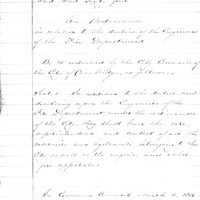 An Ordinance
in relation to the duties of the Engineers
of the Fire Department
Be it ordained by the City Council of
the City of Cambridge, as follows.
Sect. 1. In addition to the duties now
devolving upon the Engineers of the
Fire Department under the ordinances
of the City they shall have the care
superintendence and control of all the
reservoirs and hydrants belonging to the
City as well as the engines and other
fire apparatus
In Common Council March